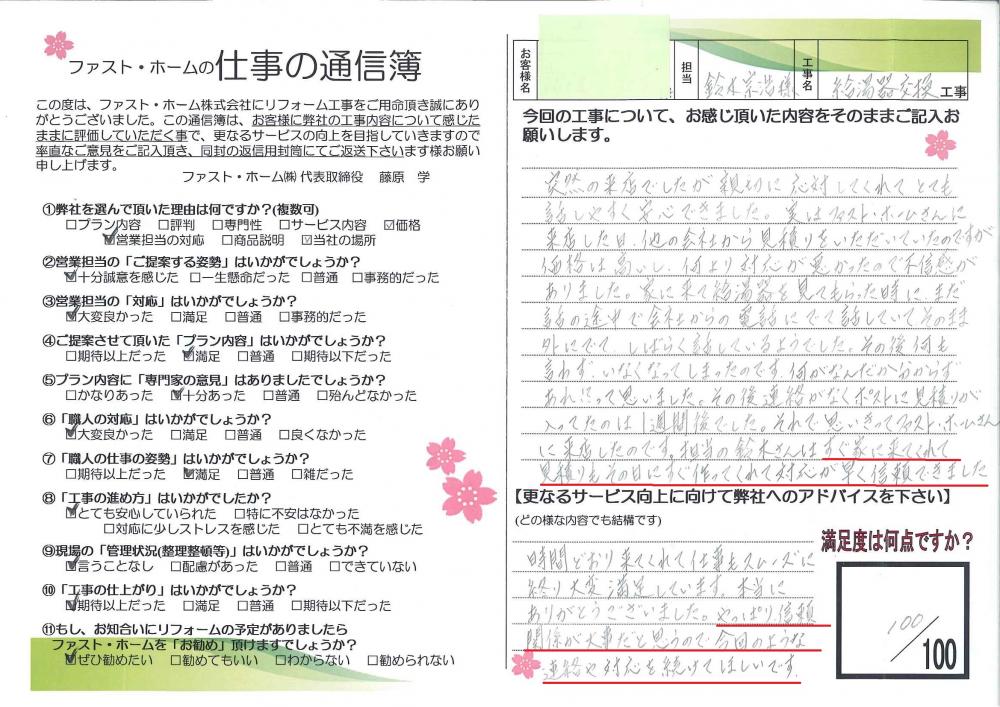 ファスト・ホームの仕事の通信簿
この度は、ファスト・ホーム株式会社にリフォーム工事をご用命頂き誠にあり
がとうございました。この通信簿は、お客様に弊社の工事内容について感じた
ままに評価していただく事で、更なるサービスの向上を目指していきますので
率直なご意見をご記入頂き、同封の返信用封筒にてご返送下さいます様お願い
申し上げます。
ファスト・ホーム㈱ 代表取締役 藤原 学
①弊社を選んで頂いた理由は何ですか?(複数可)
□プラン内容 □評判 □専門性 □サービス内容 ☑価格
☑営業担当の対応 □商品説明 ☑当社の場所
②営業担当の「ご提案する姿勢」はいかがでしょうか?
☑十分誠意を感じた □一生懸命だった □普通 □事務的だった
③営業担当の「対応」はいかがでしょうか?
☑大変良かった □満足 □普通 □事務的だった
④ご提案させて頂いた「プラン内容」はいかがでしょうか?
□期待以上だった ☑満足 □普通 □期待以下だった
⑤プラン内容に「専門家の意見」はありましたでしょうか?
□かなりあった ☑十分あった □普通 □殆んどなかった
⑥「職人の対応」はいかがでしょうか?
☑大変良かった □満足 □普通 □良くなかった
⑦「職人の仕事の姿勢」はいかがでしょうか?
□期待以上だった ☑満足 □普通 □雑だった
⑧「工事の進め方」はいかがでしたか?
☑とても安心していられた □特に不安はなかった
□対応に少しストレスを感じた □とても不満を感じた
⑨現場の「管理状況(整理整頓等)」はいかがでしょうか?
☑言うことなし □配慮があった □普通 □できていない
⑩「工事の仕上がり」はいかがでしょうか?
☑期待以上だった □満足 □普通 □期待以下だった
⑪もし、お知合いにリフォームの予定がありましたら
ファスト・ホームを「お勧め」頂けますでしょうか?
☑ぜひ勧めたい □勧めてもいい □わからない □勧められない
お客様名 担当 鈴木宗浩様 工事名 給湯器交換工事
今回の工事について、お感じ頂いた内容をそのままご記入お
願いします。
突然の来店でしたが親切に応対してくれてとても
話しやすく安心できました。実はファスト・ホームさんに
来店した日、他の会社から見積りをいただいていたのですが
価格は高いし、何より対応が悪かったので不信感が
ありました。家に来て給湯器を見てもらった時に、まだ
話の途中で会社からの電話にでて話していてそのまま
外にでて、しばらく話しているようでした。その後何も
言わず、いなくなってしまったのです。何がなんだか分からず
あれ?って思いました。その後連絡がなくポストに見積りが
入ってたのは1週間後でした。それで思いきってファスト・ホームさん
に来店したのです。担当の鈴木さんはすぐ家に来てくれて
見積りもその日にすぐ作ってくれて対応が早く信頼できました
【更なるサービス向上に向けて弊社へのアドバイスを下さい】
(どの様な内容でも結構です)
時間どおり来てくれて仕事もスムーズに
終り大変満足しています。本当に
ありがとうございました。やっぱり信頼
関係が大事だと思うので今回のような
連絡や対応を続けてほしいです。
満足度は何点ですか?
100/100